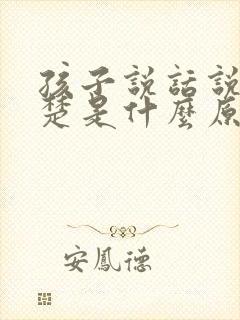 孩子説話説
楚是什麼原
安鳳德